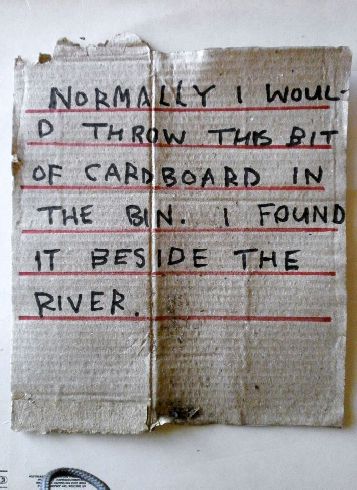 NORMALLY I WOUL-
D THROW THIS BIT
OF CARDBOARD IN
THE BIN. I FOUND
IT BESIDE THE
RIVER.